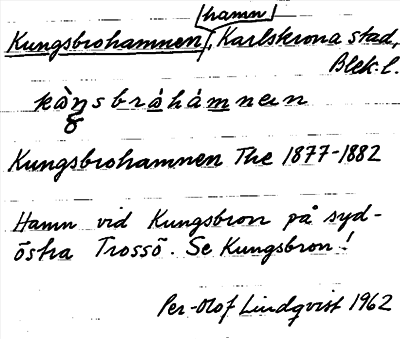 hamn
Kungsbrohamnen, Karlskrona stad,
Blek. l.
Kungsbrohamnen The 1877-1882
Hamn vid Kungsbron på syd-
östra Trossö. Se Kungsbron!
Per-Olof Lindqvist 1962